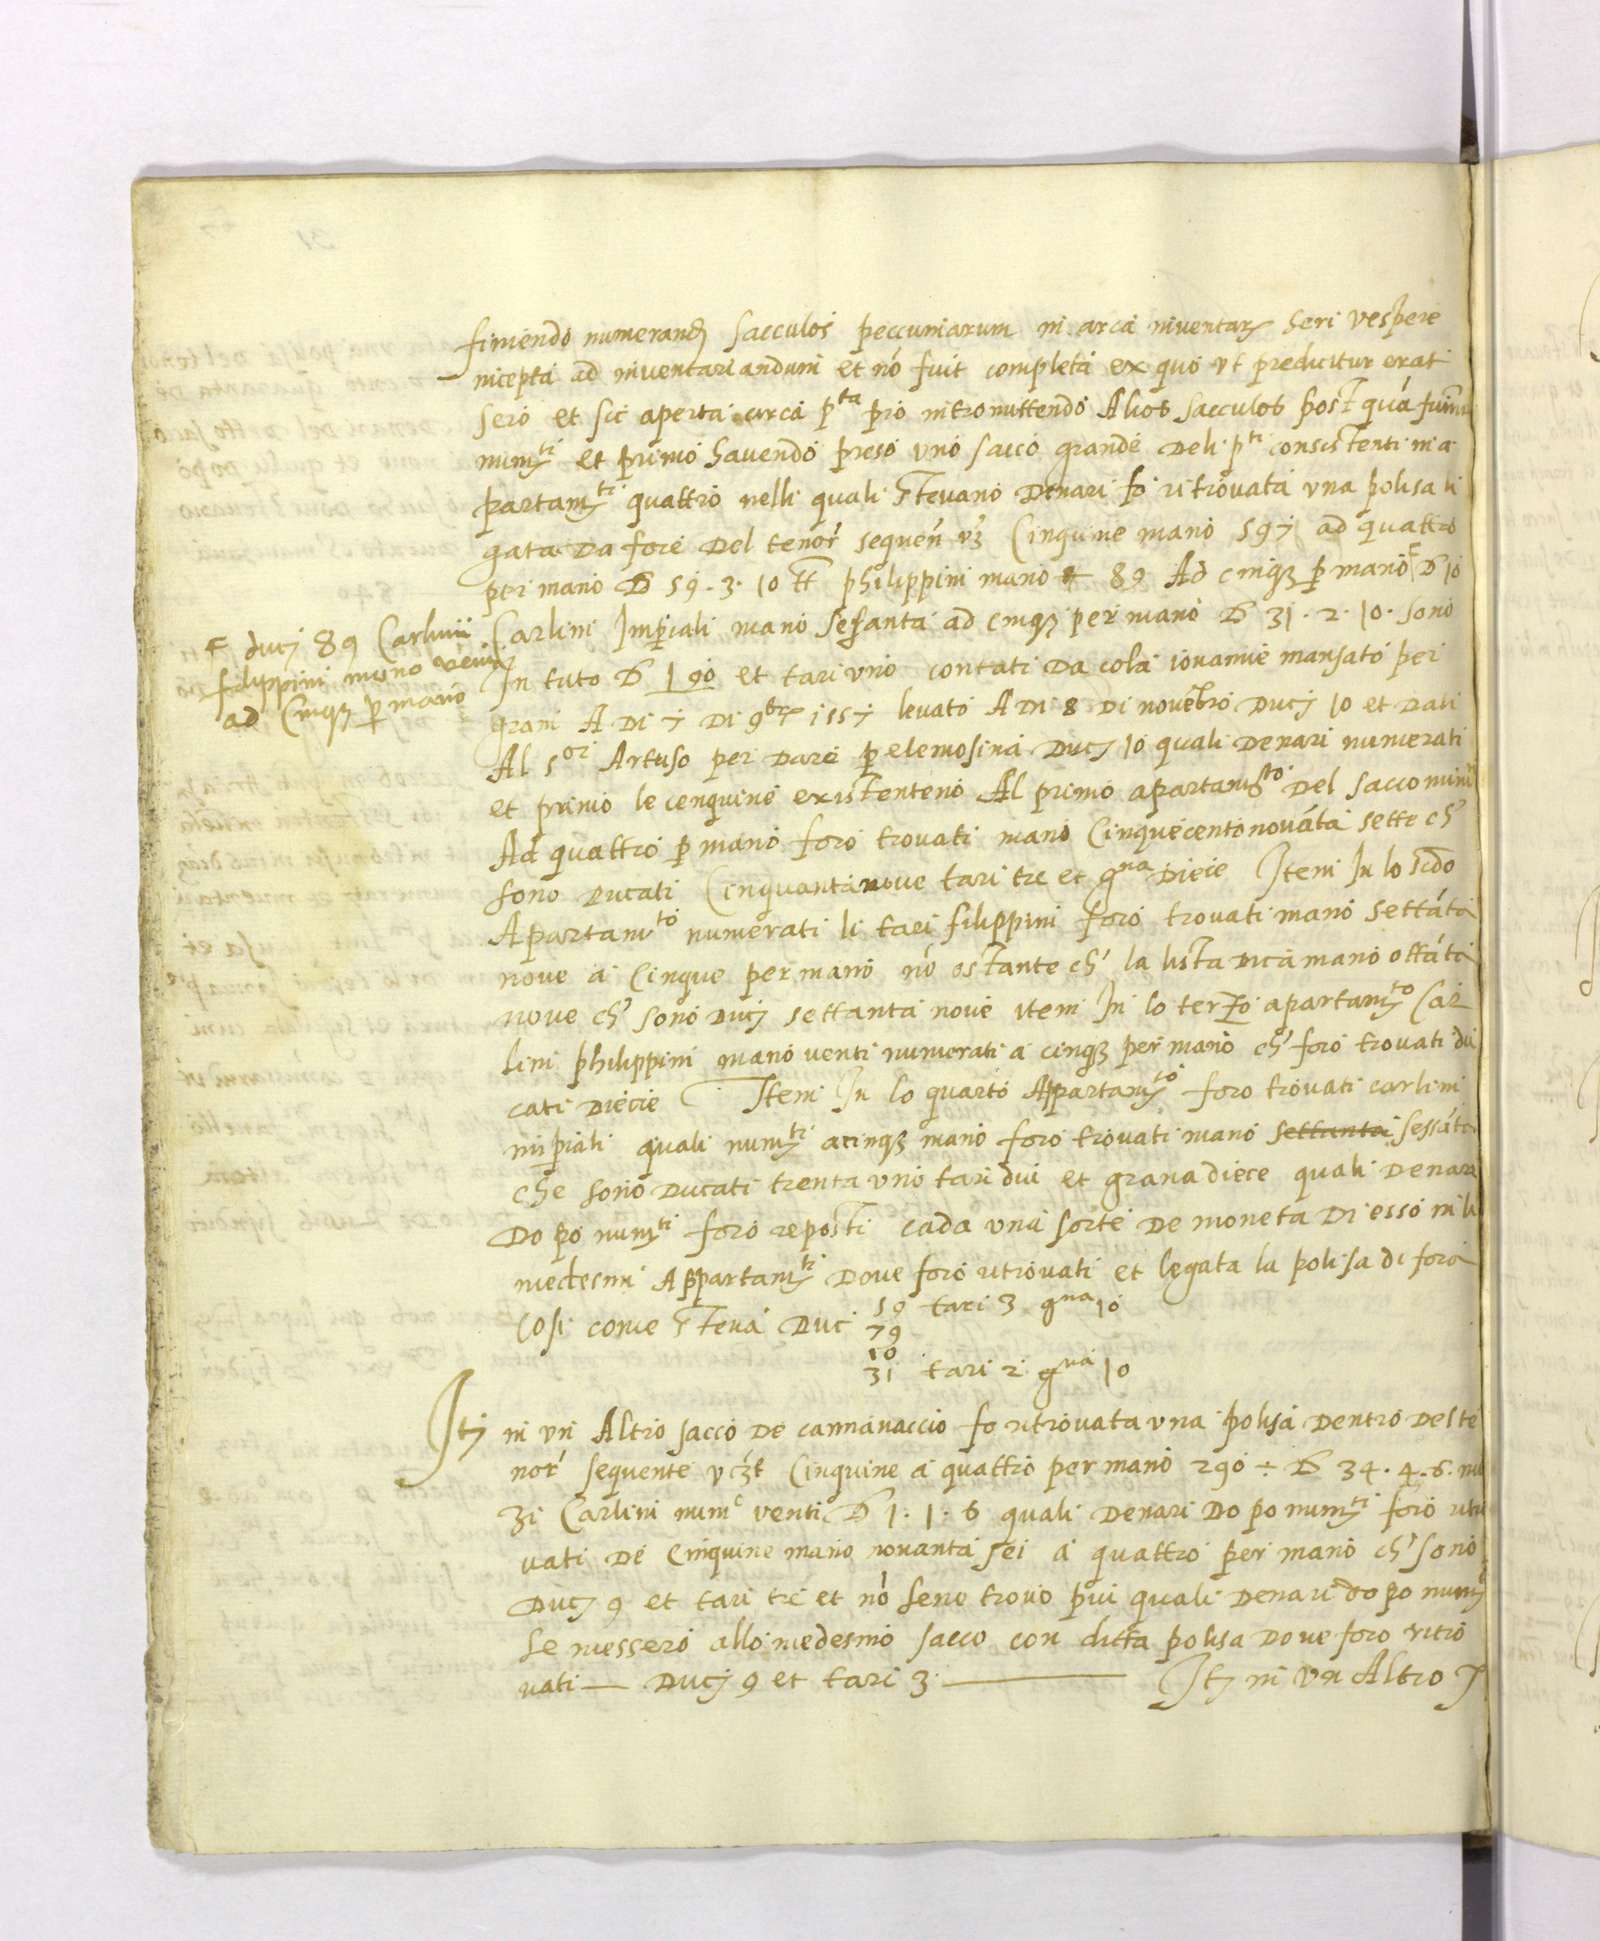 finiendo numerand sacculos peccuniarum in arca inventar heri vespere
incepta ad inventariandum et nō fuit completa ex quo ut predicitur erat
sero et sic aperta arca pta pro intromittendo Alios sacculos post quā
numti et primo havendo preso uno sacco grande deli pti consistenti in a
partamti quattro nelli quali stevano denari fo ritrovata una polisa li
gata da fore del tenor sequen vz Cinquine mano 597 ad quattro
per mano D 59.3.10 tt philippini mano 89 Ad cinq p mano D 10
Carlini Imperiali mano sessanta ad cinq per mano D 31.2.10. sono
In tuto D 190 et tari uno contati da cola iovanne mansato per
grani A di 7 di 9bre 1557 levato A di 8 di novēbro Duc 10 et dati
Al sor Artuso per dare p elemosina Duc 10 quali denari numerati
et primo le cenquine existenteno Al primo apartamto del sacco
Ad quattro p mano foro trovati mano Cinquecento novāta sette ch
sono Ducati Cinquantanove tari tre et gna diece Item In lo scdo
Apartamto numerati li tari filippini foro trovati mano settāta
nove a Cinque per mano nō ostante ch la lista dica mano ottāta
nove ch sono Duc settanta nove item In lo terzo apartamto Car
lini philippini mano venti numerati a cinq per mano ch foro trovati du
cati diecie Item In lo quarto Appartamto foro trovati carlini
impiali quali numti a cinq mano foro trovati mano settanta sessāta
che sono Ducati trenta uno tari dui et grana diece quali denari
Do po numti foro reposti cada una sorte de moneta di esso in li
medesmi Appartamti dove foro ritrovati et legata la polisa di fora
Cosi come steva Duc 59 tari 3 gna 10
79
10
31 tari 2 gna 10
F duc 89 Carlini
filippini mano venti
ad Cinq p mano
It in un Altro sacco de cannavaccio fo ritrovata una polisa dentro del te
nor sequente vzt Cinquine a quattro per mano 290 ÷ D 34.4.6.
zi Carlini numo venti D 1.1.6 quali denari do po numti foro ritro
vati de Cinquine mano novanta sei a quattro per mano ch sono
Duc 9 et tari tre et nō seno trovo piu quali denari do po numti
se messero allo medesmo sacco con ditta polisa dove foro ritro
vati — Duc 9 et tari 3 — It in un Altro